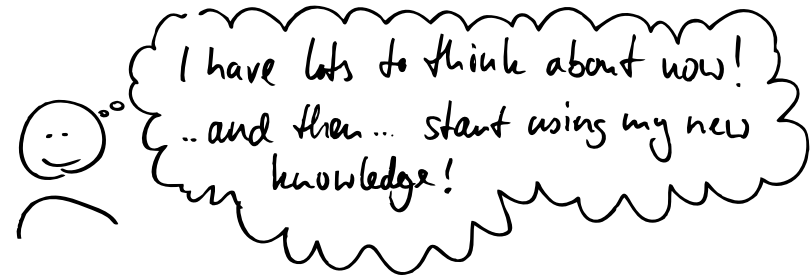 I have lots to think about now!
..and then... start using my new
knowledge!